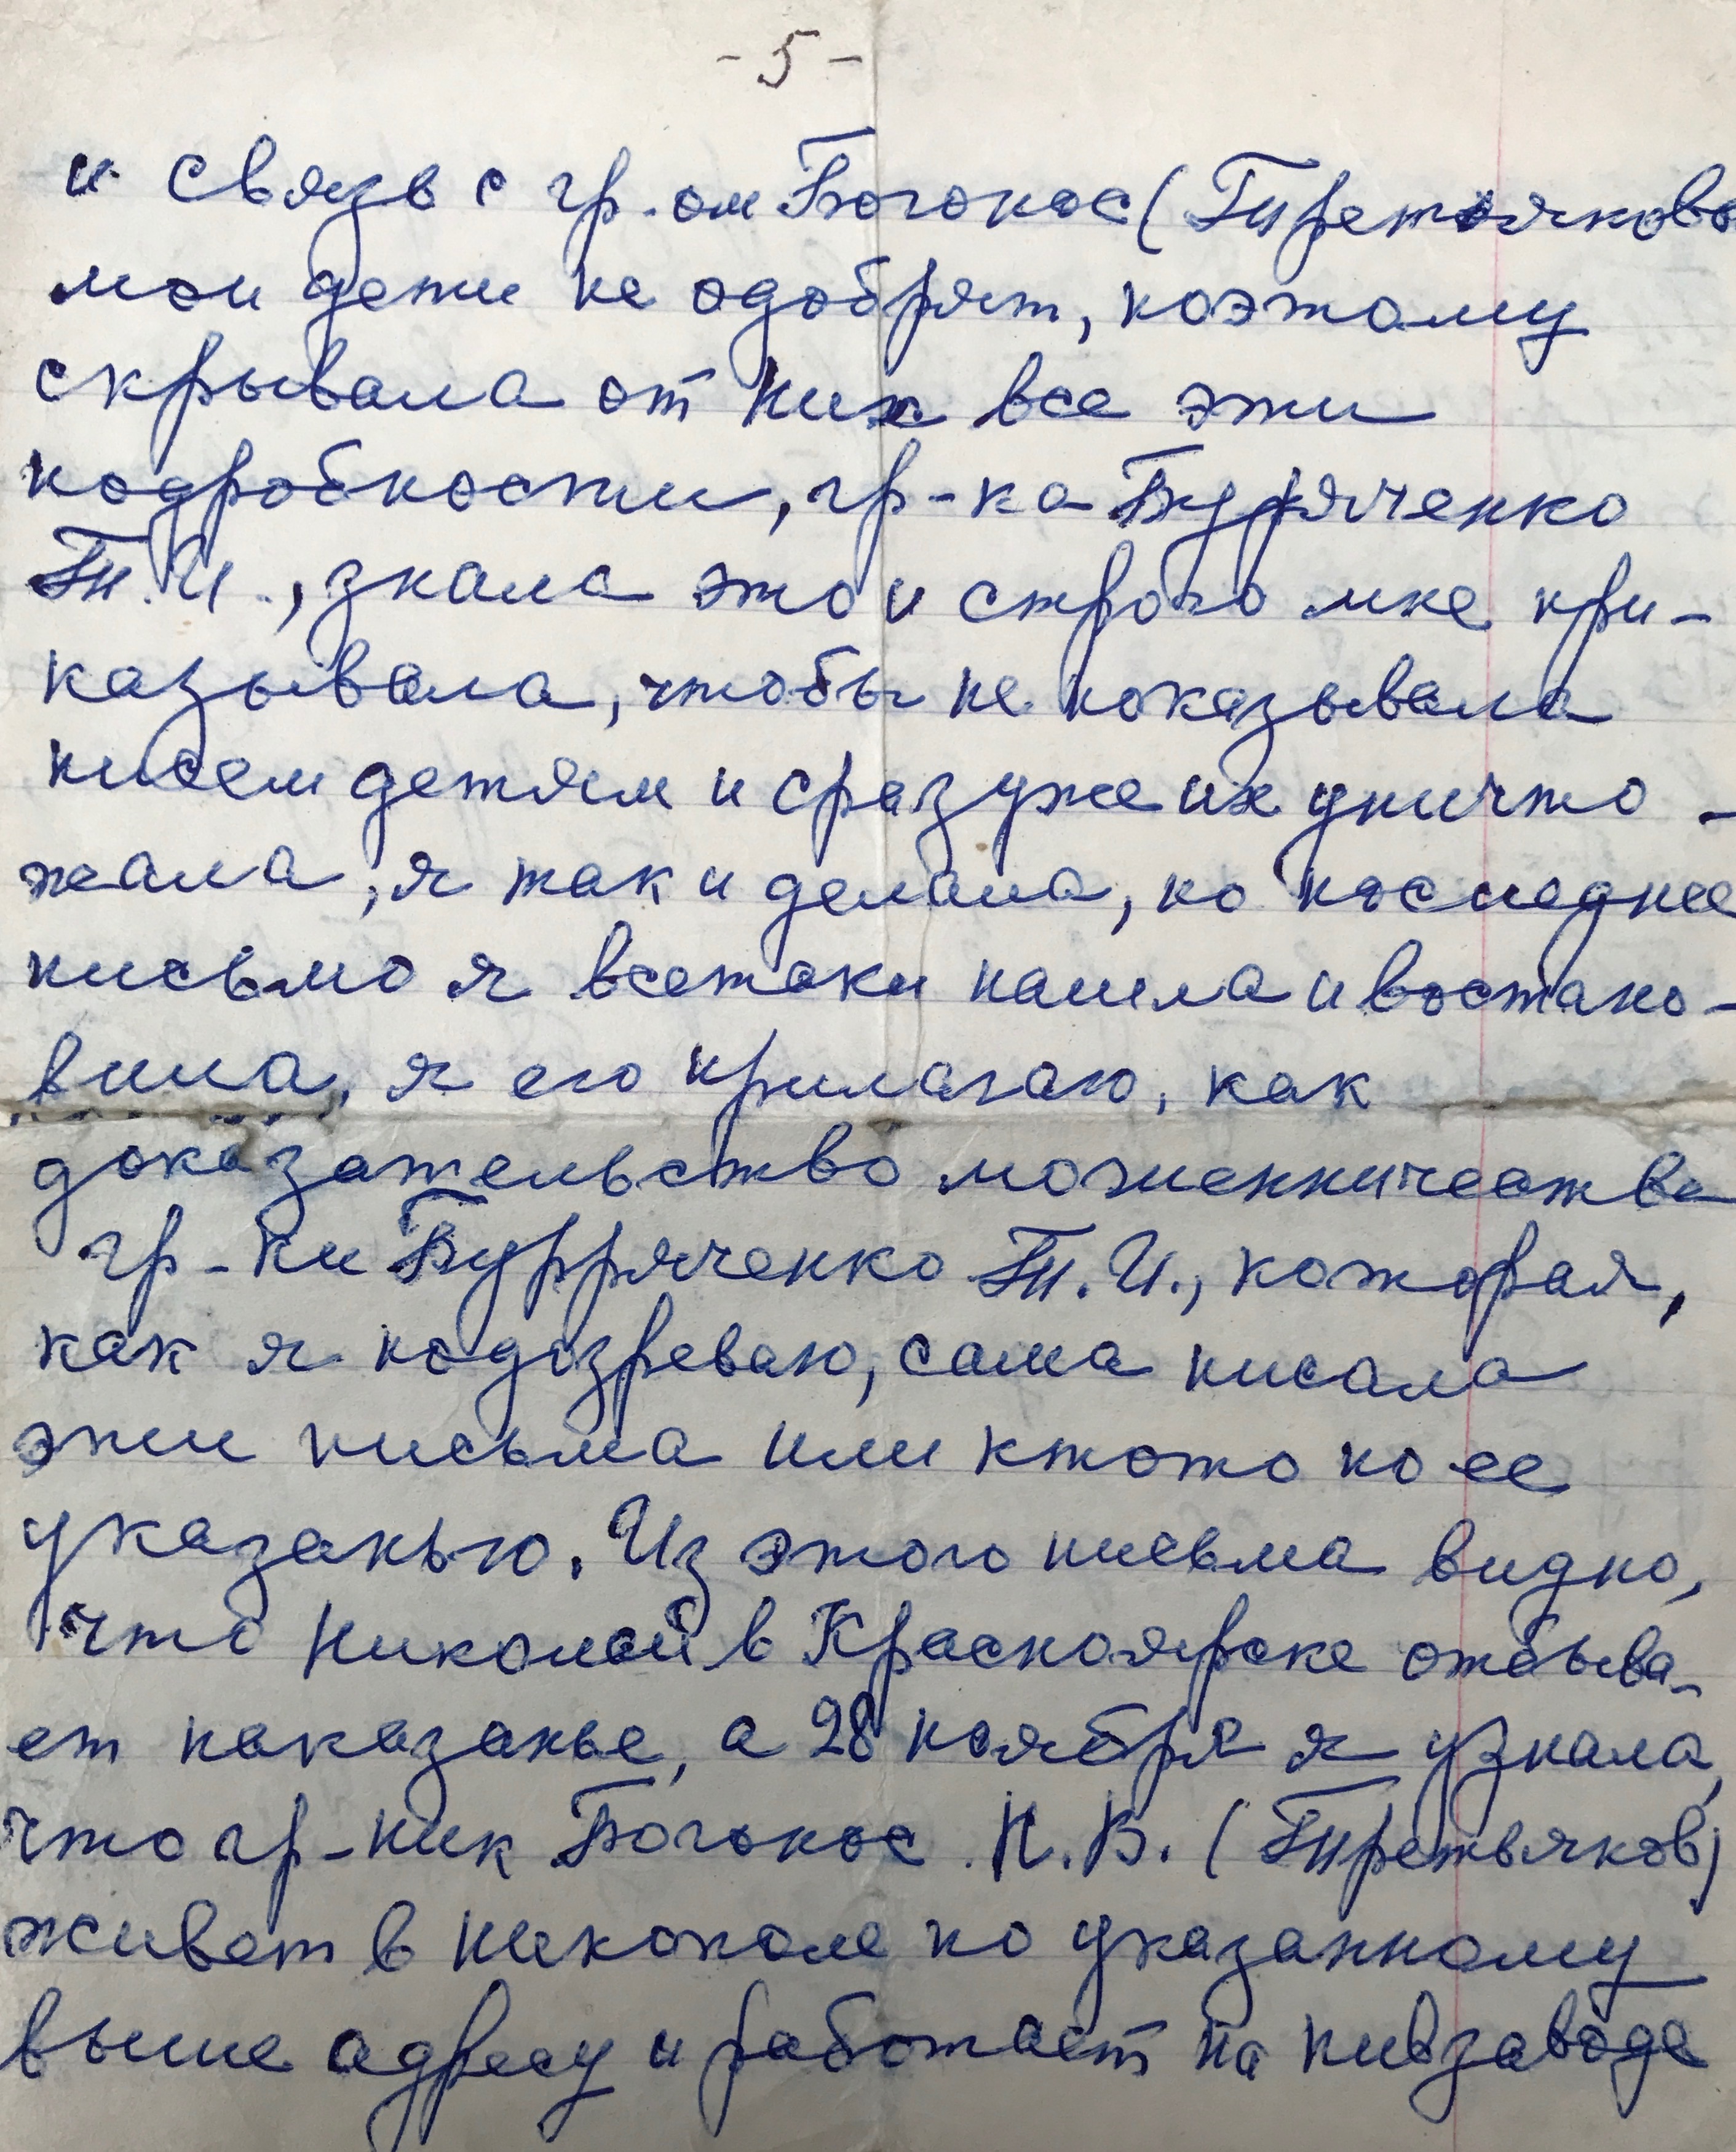 - 5 -
и связь с гр. ом Богонос (Третьякова
мои дети не одобрят, поэтому
скрывала от них все эти
подробности, гр-ка Бурряченко
Т. И., знала это и строго мне при-
казывала, чтобы не показывала
писем детям и сразу же их уничто-
жала, я так и делала, но последнее
письмо я всетаки нашла и востано-
вила, я его прилагаю, как
доказательство мошенничества
гр-ки Бурряченко Т. И., которая,
как я подозреваю, сама писала
эти письма или ктото по ее
указанью. Из этого письма видно,
что Николай в Красноярске отбыва-
ет наказанье, а 28 ноября я узнала,
что гр-ник Богонос Н. В. (Третьяков)
живет в Никополе по указанному
выше адресу и работает на пивзаводе